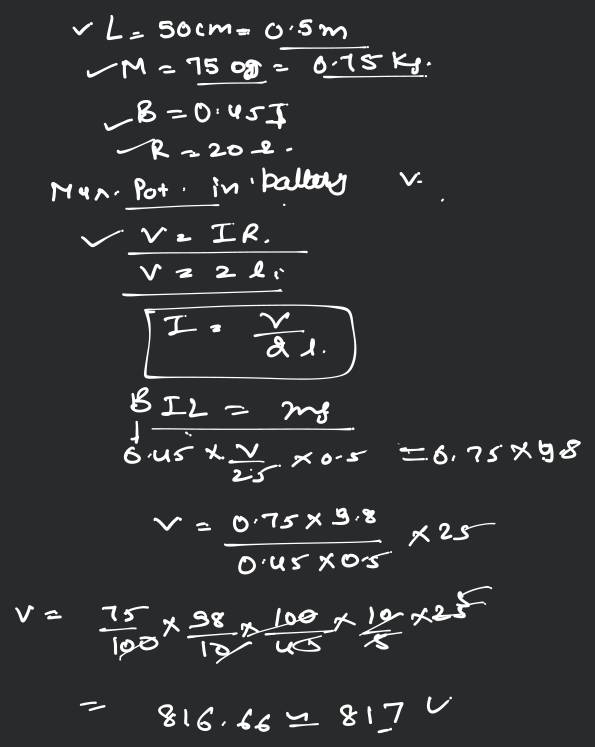 ✓ L = 50cm = 0.5m
✓ M = 750g = 0.75 Kg.
✓ B = 0.45 T
✓ R = 20
Pot. in battery V.
✓ V = IR.
V =
I = V
BIL = mg
0.45 × V/25 × 0.5 = 0.75 × 9.8
V = 0.75 × 9.8 / 0.45 × 0.5 × 25
V = 75/100 × 98/10 × 100/45 × 10/5 × 25
= 816.66 ≃ 817 V